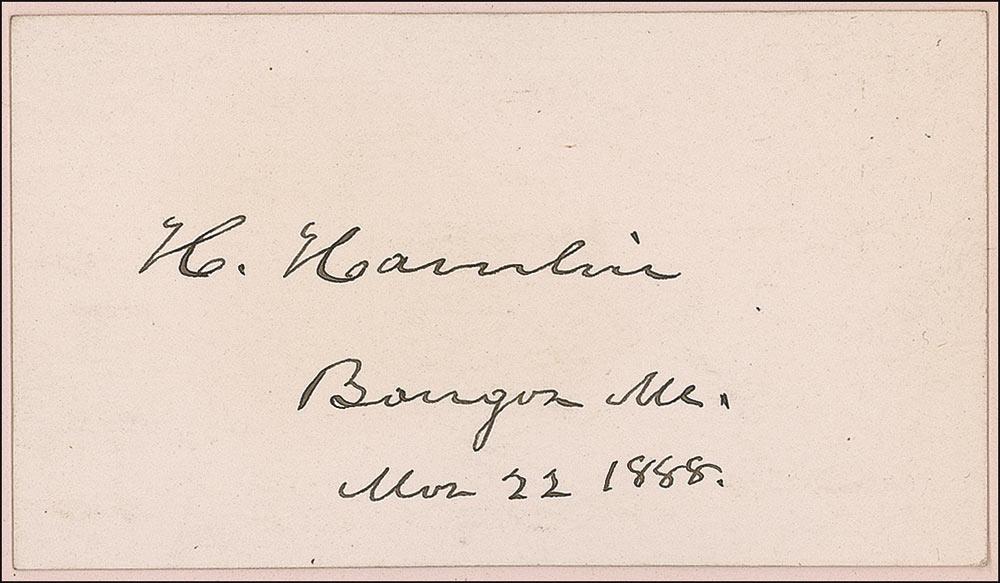 H. Hamlin
Bangor Me.
Mar 22 1888.